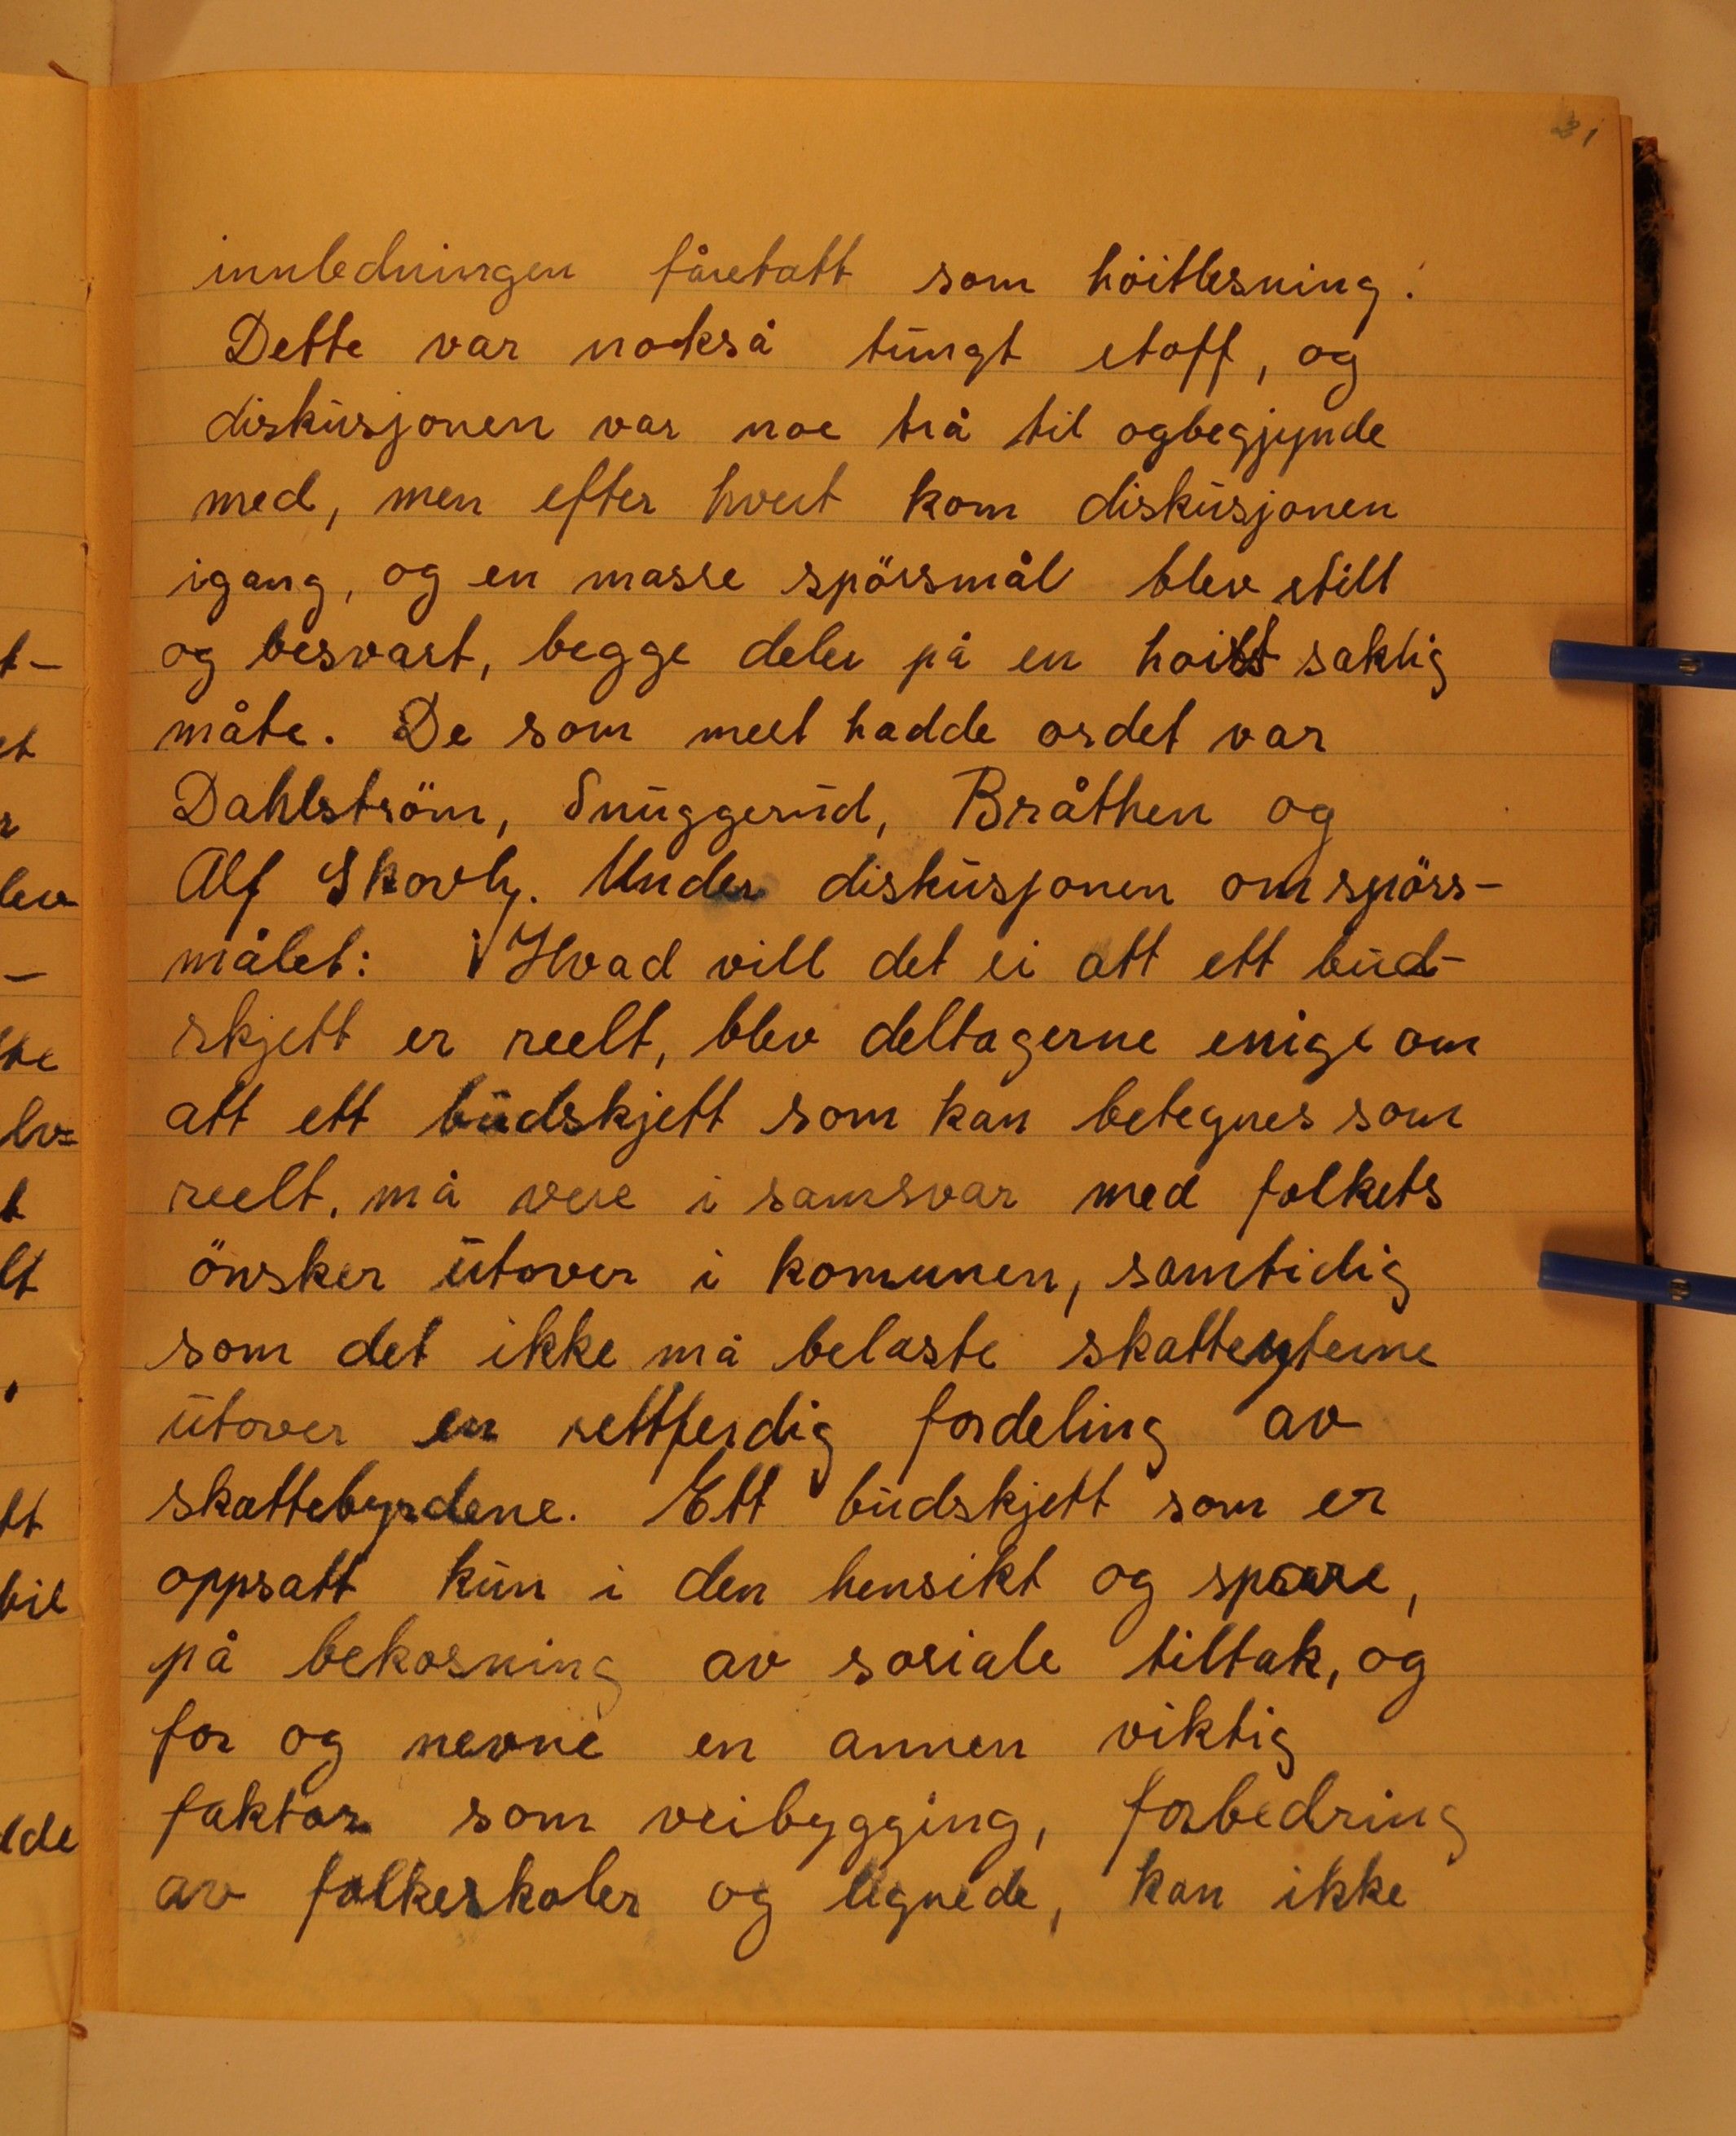 21
innledningen fåretatt som höitlesning.
Dette var nokså tungt stoff, og
diskusjonen var noe trå til ogbegjynde
med, men efter hvert kom diskusjonen
igang, og en masse spörsmål blev stilt
og besvart, begge deler på en hoist saklig
måte. De som mest hadde ordet var
Dahlström, Snuggerud, Bråthen og
Alf Skovly. Under diskusjonen om spörs-
målet: Hvad vill det si att ett bud-
skjett er reelt, blev deltagerne enige om
att ett budskjett som kan betegnes som
reelt, må vere i samsvar med folkets
önsker utover i komunen, samtidig
som det ikke må belaste skatteyterne
utover en rettferdig fordeling av
skattebyrdene. Ett budskjett som er
oppsatt kun i den hensikt og spare,
på bekosning av sosiale tiltak, og
for og nevne en annen viktig
faktor som veibygging, forbedring
av folkeskoler og lignede, kan ikke